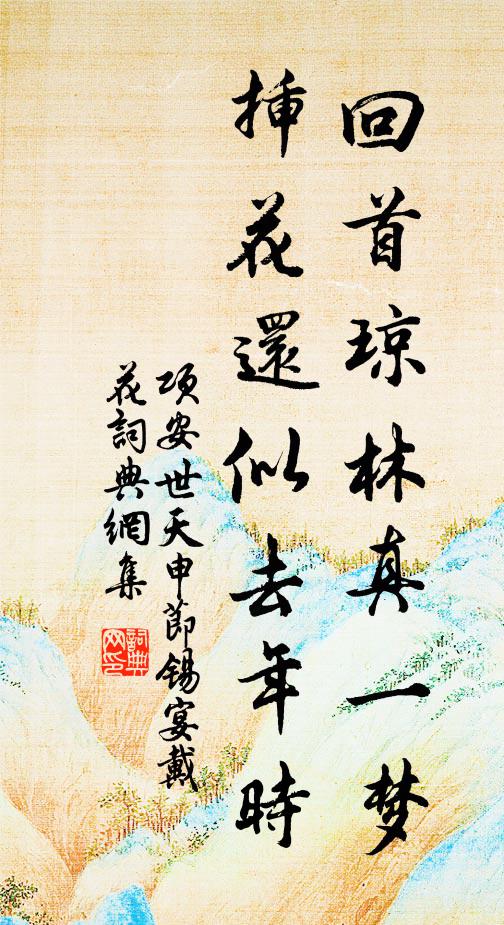 回首琼林真一梦
插花還似去年時
项安世天申節錫宴戴
花詞典網集
詞典
网印